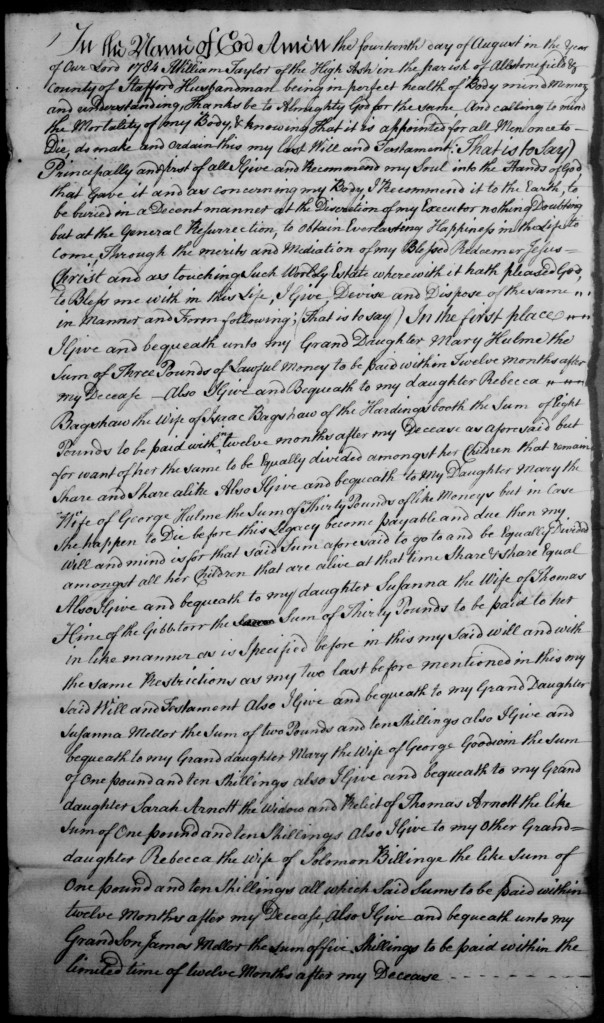 In the Name of God Amen the fourteenth day of August in the Year
of Our Lord 1784 I William Taylor of the High Ash in the parish of Allstonefield &
County of Stafford Husbandman being in perfect health of Body mind Memory
and understanding Thanks be to Almighty God for the same And calling to mind
the Mortality of my Body, & knowing That it is appointed for all Men once to
Die, do make and ordain this my Last Will and Testament; That is to Say)
Principally and first of all I Give and Recommend my Soul into the Hands of God,
that Gave it and as concerning my Body I Recommend it to the Earth, to
be buried in a Decent manner at the Discretion of my Executor nothing Doubting
but at the General Resurrection, to obtain Everlasting Happiness in the Life to
Come, Through the merits and Mediation of my Blessed Redeemer Jesus
Christ and as touching Such Worldly Estate wherewith it hath pleased God,
to Bless me with in this Life, I Give, Devise and Dispose of the same
in Manner and Form following; (That is to say) In the first place
I Give and bequeath unto my Grand Daughter Mary Hulme the
Sum of Three Pounds of Lawful Money to be paid within Twelve months after
my Decease – Also I Give and Bequeath to my daughter Rebecca
Bagshaw the Wife of Isaac Bagshaw of the Hardingsbooth the Sum of Eight
Pounds to be paid within twelve months after my Decease as aforesaid but
for want of her the same to be Equally divided amongst her Children that remain
Share and Share alike Also I Give and bequeath to My Daughter Mary the
Wife of George Hulme the Sum of Thirty Pounds of like Moneys but in Case
She happen to Die before this Legacy become payable and due then my
Will and mind is for that said Sum aforesaid to go to and be Equally Divided
amongst all her Children that are alive at that time Share & share Equal
Also I Give and bequeath to my daughter Susanna the Wife of Thomas
Hine of the Gibbtorr the Sum of Thirty Pounds to be paid to her
in like manner as is Specified before in this my said Will and with
the same Restrictions as my two last before mentioned in this my
said Will and Testament Also I Give and bequeath to my Grand Daughter
Susanna Mellor the Sum of two Pounds and ten Shillings also I Give and
bequeath to my Grand daughter Mary the Wife of George Goodwin the Sum
of One pound and ten Shillings also I Give and bequeath to my Grand
daughter Sarah Arnott the Widow and Relict of Thomas Arnott the like
Sum of One pound and ten Shillings Also I Give to my Other Grand=
daughter Rebecca the Wife of Solomon Billinge the like Sum of
One pound and ten Shillings all which Said Sums to be paid within
twelve Months after my Decease, Also I Give and bequeath unto my
Grand Son James Mellor the Sum of five Shillings to be paid within the
limited time of twelve Months after my Decease